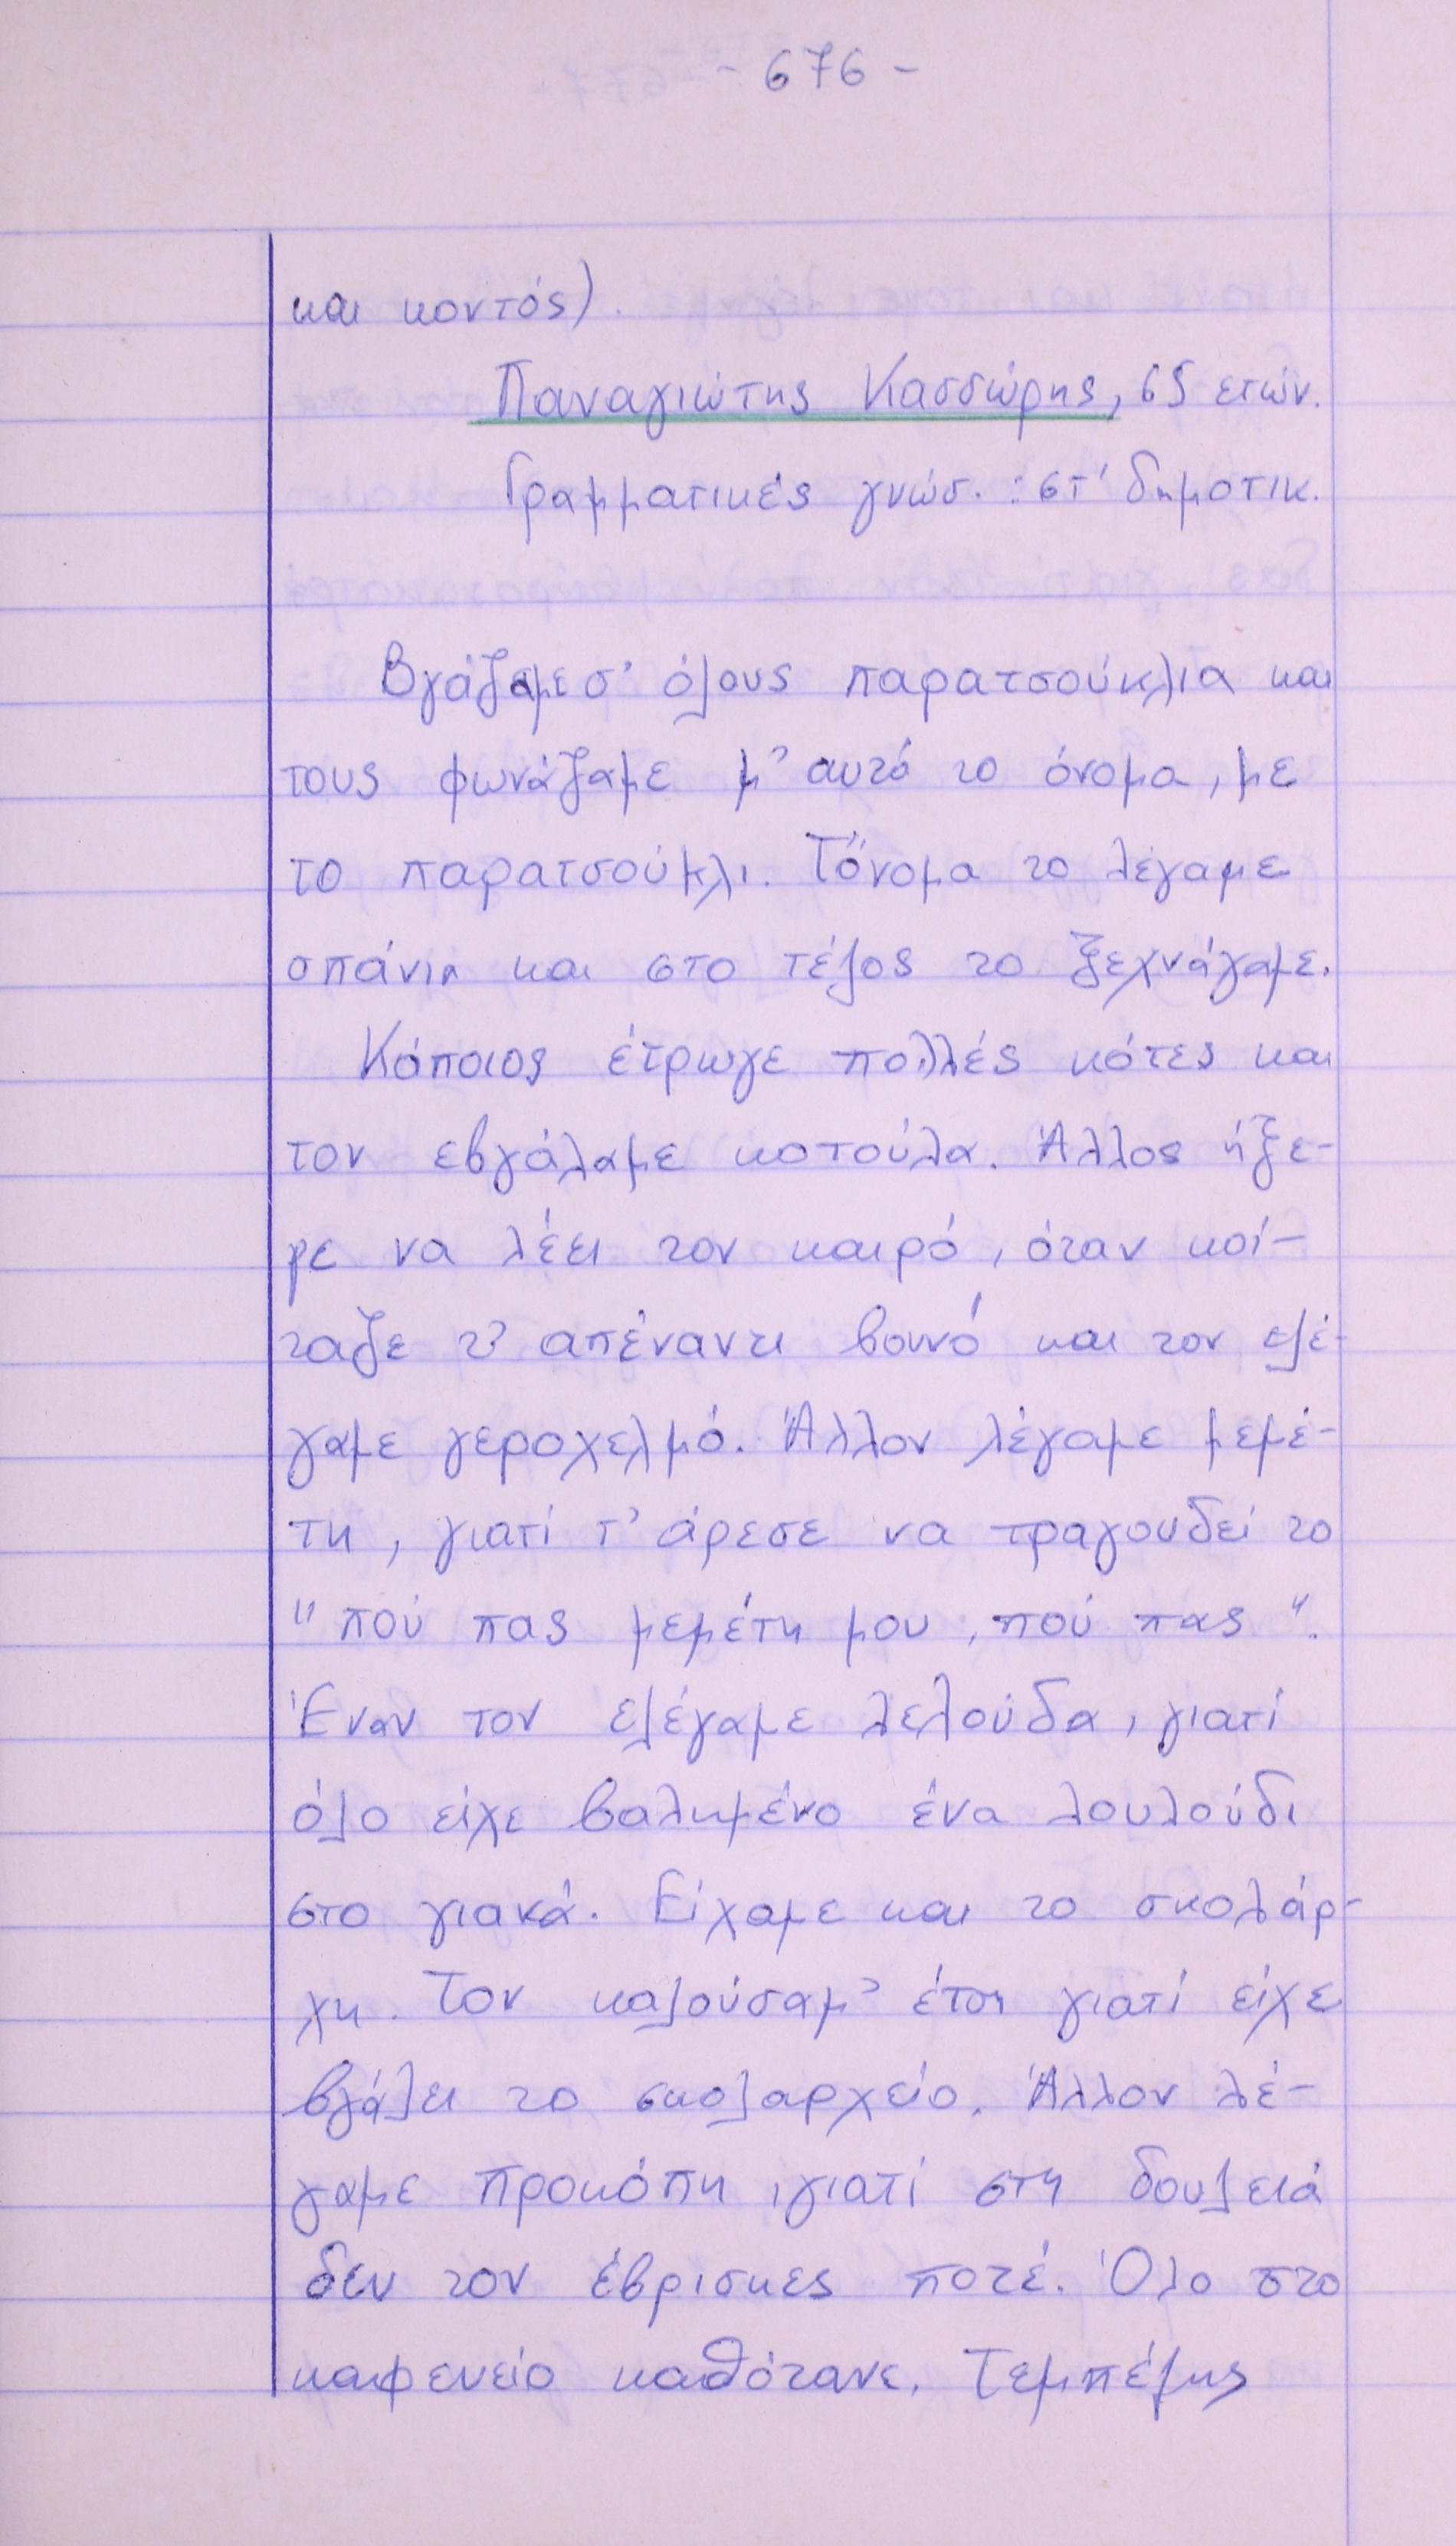 - 676 -
και κοντός).
Παναγιώτης Κασδώρης, 65 ετών.
Γραμματικές γνώσ. : στ' δημοτικ.
Βγάζαμε σ' όλους παρατσούκλια και
τους φωνάζαμε μ' αυτό το όνομα, με
το παρατσούκλι. Τὄνομα το λέγαμε
σπάνια και στο τέλος το ξεχνάγαμε.
Κάποιος έτρωγε πολλές κότες και
τον εβγάλαμε κοτούλα. Άλλος ήξε-
ρε να λέει τον καιρό, όταν κοί-
ταζε τ' απέναντι βουνό και τον ελέ-
γαμε γεροχελμό. Άλλον λέγαμε μεμέ-
τη, γιατί τ' άρεσε να τραγουδεί το
"πού πας μεμέτη μου, πού πας".
Έναν τον ελέγαμε λελούδα, γιατί
όλο είχε βαλημένο ένα λουλούδι
στο γιακά. Είχαμε και το σκολάρ-
χη. Τον καλούσαμ' έτσι γιατί είχε
βγάλει το σκολαρχείο. Άλλον λέ-
γαμε προκόπη, γιατί στη δουλειά
δεν τον έβρισκες ποτέ. Όλο στο
καφενείο καθότανε. Τεμπέλης